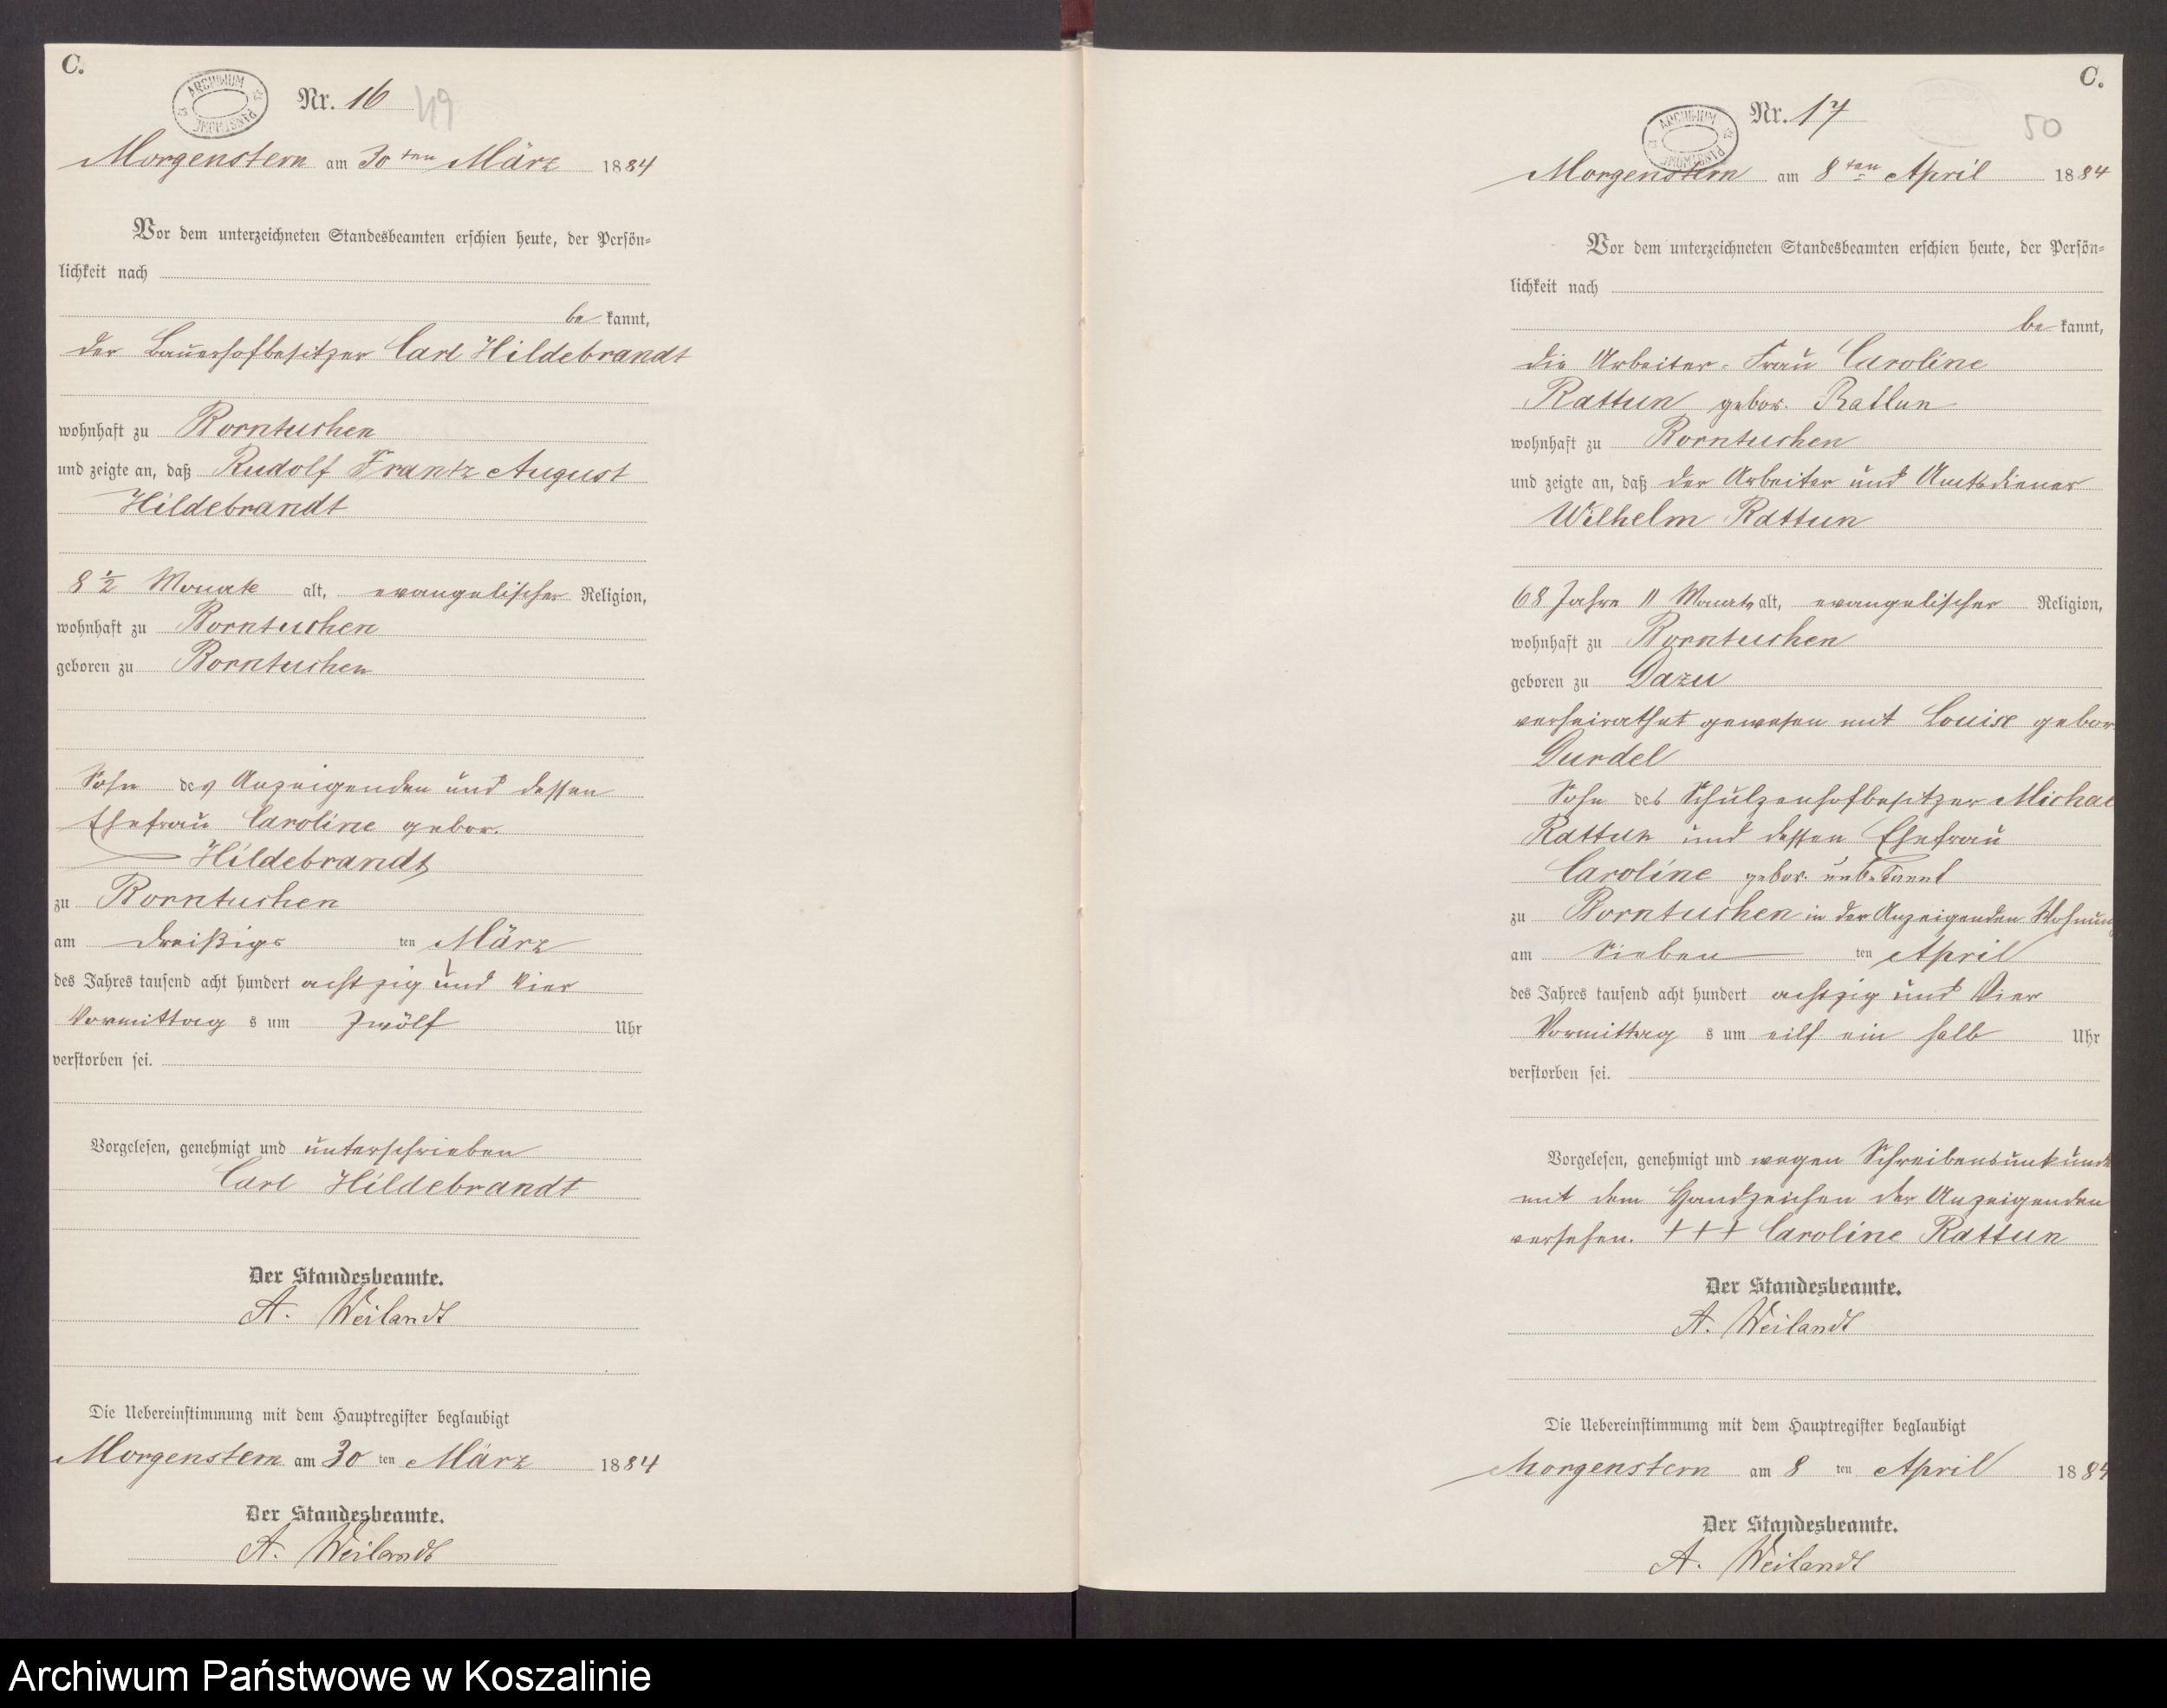 C.
ARCHIWUM PAŃSTWOWE
Nr. 16
49
Morgenstern am 30ten März 1884
Vor dem unterzeichneten Standesbeamten erschien heute, der Persön-
lichkeit nach
be kannt,
der Bauerhofbesitzer Carl Hildebrandt
wohnhaft zu Borntuchen
und zeigte an, daß Rudolf Frantz August
Hildebrandt
8 1/2 Monate alt, evangelischer Religion,
wohnhaft zu Borntuchen
geboren zu Borntuchen
Sohn des Anzeigenden und dessen
Ehefrau Caroline gebor.
Hildebrandt
zu Borntuchen
am dreißigs ten März
des Jahres tausend acht hundert achtzig und vier
Vormittag s um zwölf Uhr
verstorben sei.
Vorgelesen, genehmigt und unterschrieben
Carl Hildebrandt
Der Standesbeamte.
A. Weilandt
Die Uebereinstimmung mit dem Hauptregister beglaubigt
Morgenstern am 30 ten März 1884
Der Standesbeamte.
A. Weilandt
C.
ARCHIWUM PAŃSTWOWE
Nr. 17
50
Morgenstern am 8ten April 1884
Vor dem unterzeichneten Standesbeamten erschien heute, der Persön-
lichkeit nach
be kannt,
die Arbeiter-Frau Caroline
Rattun gebor. Ratlun
wohnhaft zu Borntuchen
und zeigte an, daß der Arbeiter und Amtsdiener
Wilhelm Rattun
68 Jahre 11 Monate alt, evangelischer Religion,
wohnhaft zu Borntuchen
geboren zu Dazu
verheirathet gewesen mit Louise gebor
Durdel
Sohn des Schulzenhofbesitzer Michae
Rattun und dessen Ehefrau
Caroline gebor. unbekannt
zu Borntuchen in der Anzeigenden Wohnung
am Sieben ten April
des Jahres tausend acht hundert achtzig und Vier
Vormittag s um eilf ein halb Uhr
verstorben sei.
Vorgelesen, genehmigt und wegen Schreibensunkunde
mit dem Handzeichen der Anzeigenden
versehen. +++ Caroline Rattun
Der Standesbeamte.
A. Weilandt
Die Uebereinstimmung mit dem Hauptregister beglaubigt
Morgenstern am 8 ten April 1884
Der Standesbeamte.
A. Weilandt
Archiwum Państwowe w Koszalinie